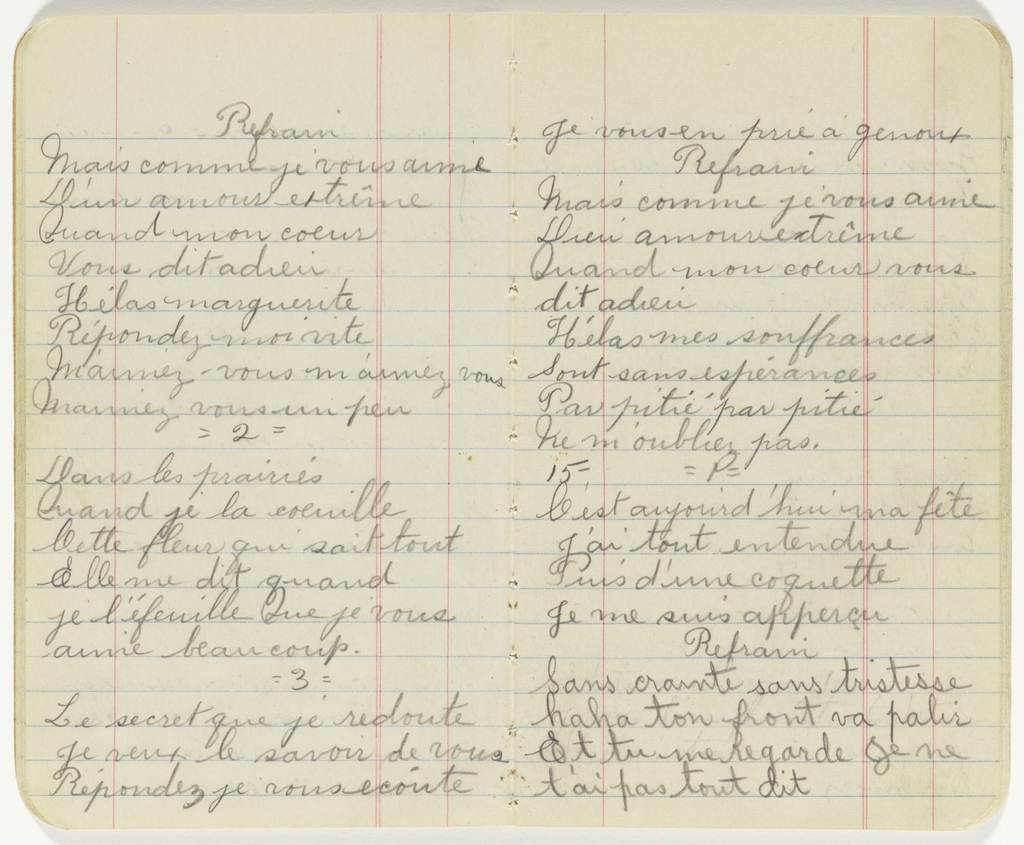 Refrain
Mais comme je vous aime
D'un amour extrême
Quand mon coeur
Vous dit adieu
Hélas marguerite
Répondez moi vite
M'aimez-vous m'aimez vous
M'aimez vous un peu
= 2 =
Dans les prairies
Quand je la coeuille
Cette fleur qui sait tout
Elle me dit quand
je l'éfeuille Que je vous
aime beaucoup.
= 3 =
Le secret que je redoute
Je veux le savoir de vous
Répondez je vous écoute
Je vous en prie a genoux
Refrain
Mais comme je vous aime
D'un amour extrême
Quand mon coeur vous
dit adieu
Hélas mes souffrances
Sont sans espérances
Par pitié par pitié
Ne m'oubliez pas.
15= = P=
C'est aujourd'hui ma fête
J'ai tout entendue
Puis d'une coquette
Je me suis apperçu
Refrain
Sans crainte sans tristesse
haha ton front va palir
Et tu me regarde Je ne
t'ai pas tout dit